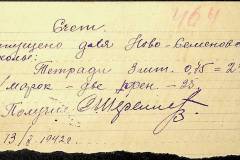 464
Счет.
тпущено для Ново-Семенов
школы:
Тетради 3 шт. 0,75 = 2
марок - две - 25
Получил
13/ 1942г.